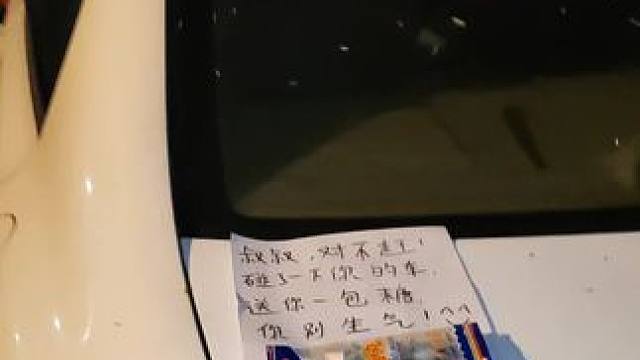 叔叔,对不起!
碰了一下你的车.
送你一包糖.
你别生气!^^